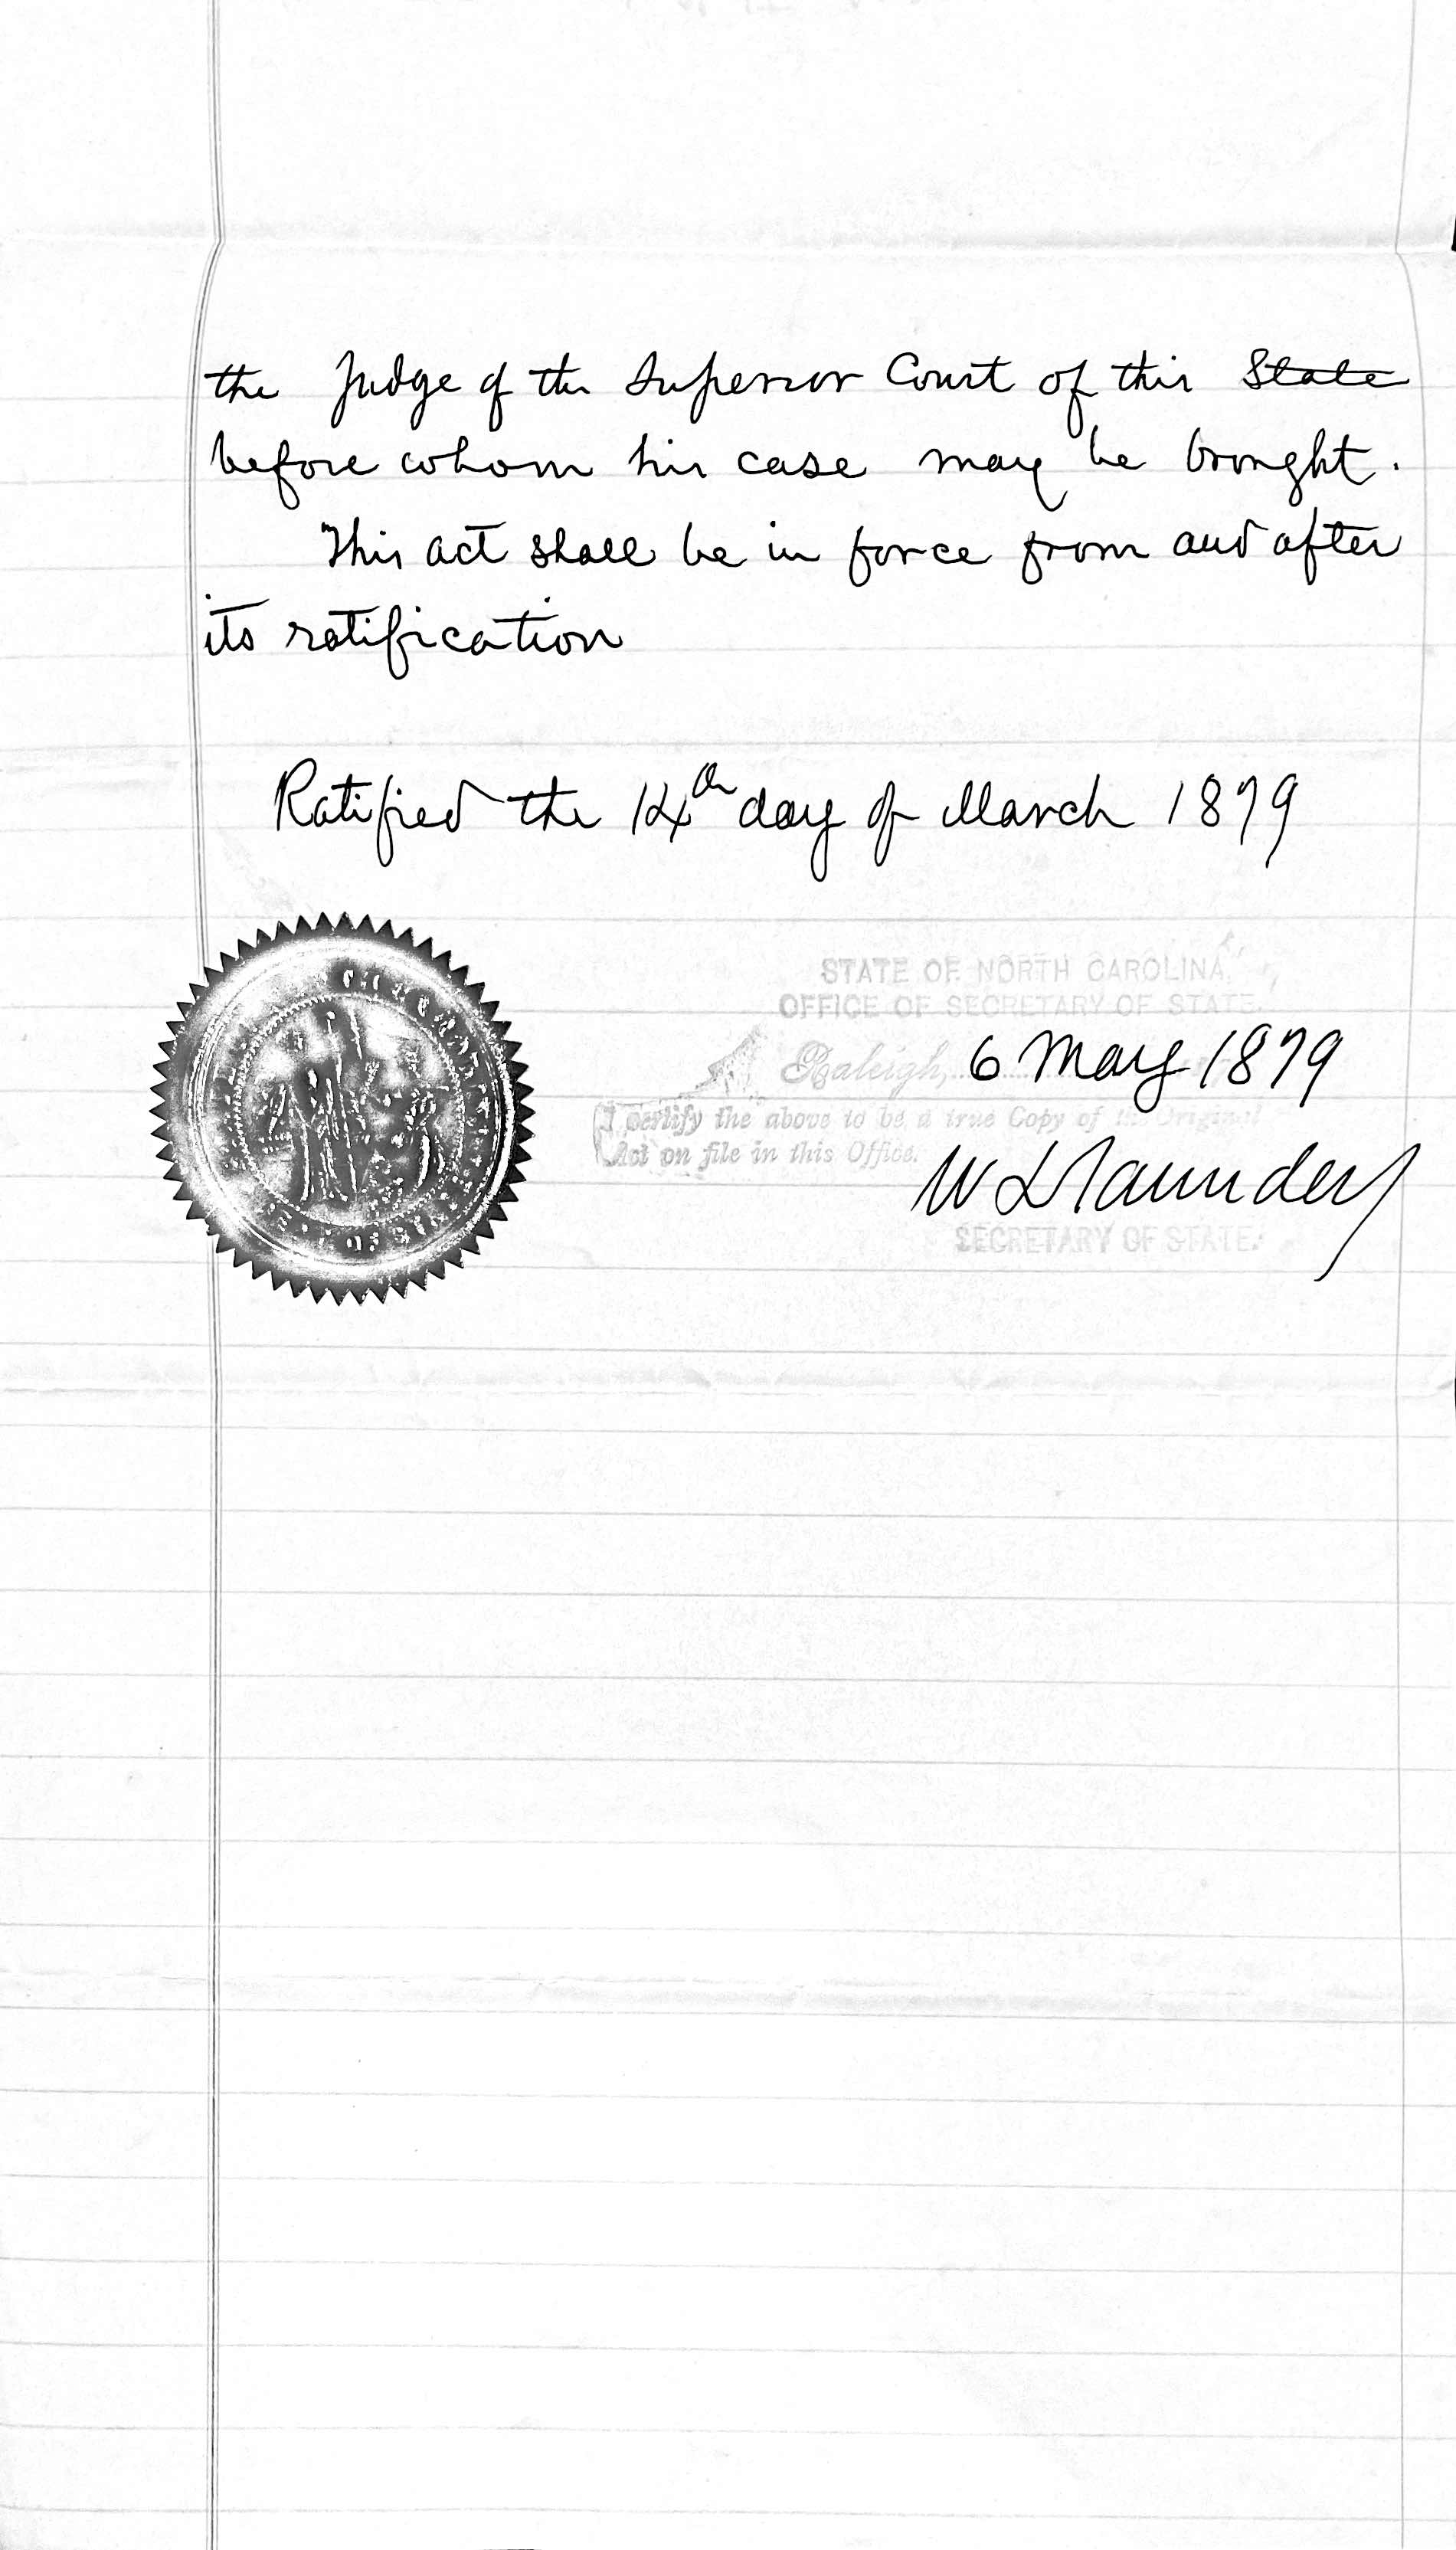 the Judge of the Superior Court of this State
before whom his case may be brought.
This act shall be in force from and after
its ratification
Ratified the 14th day of March 1879
STATE OF NORTH CAROLINA,
OFFICE OF SECRETARY OF STATE.
Raleigh, 6 May 1879
I certify the above to be a true Copy of the Original
Act on file in this Office.
W L Saunders
SECRETARY OF STATE.